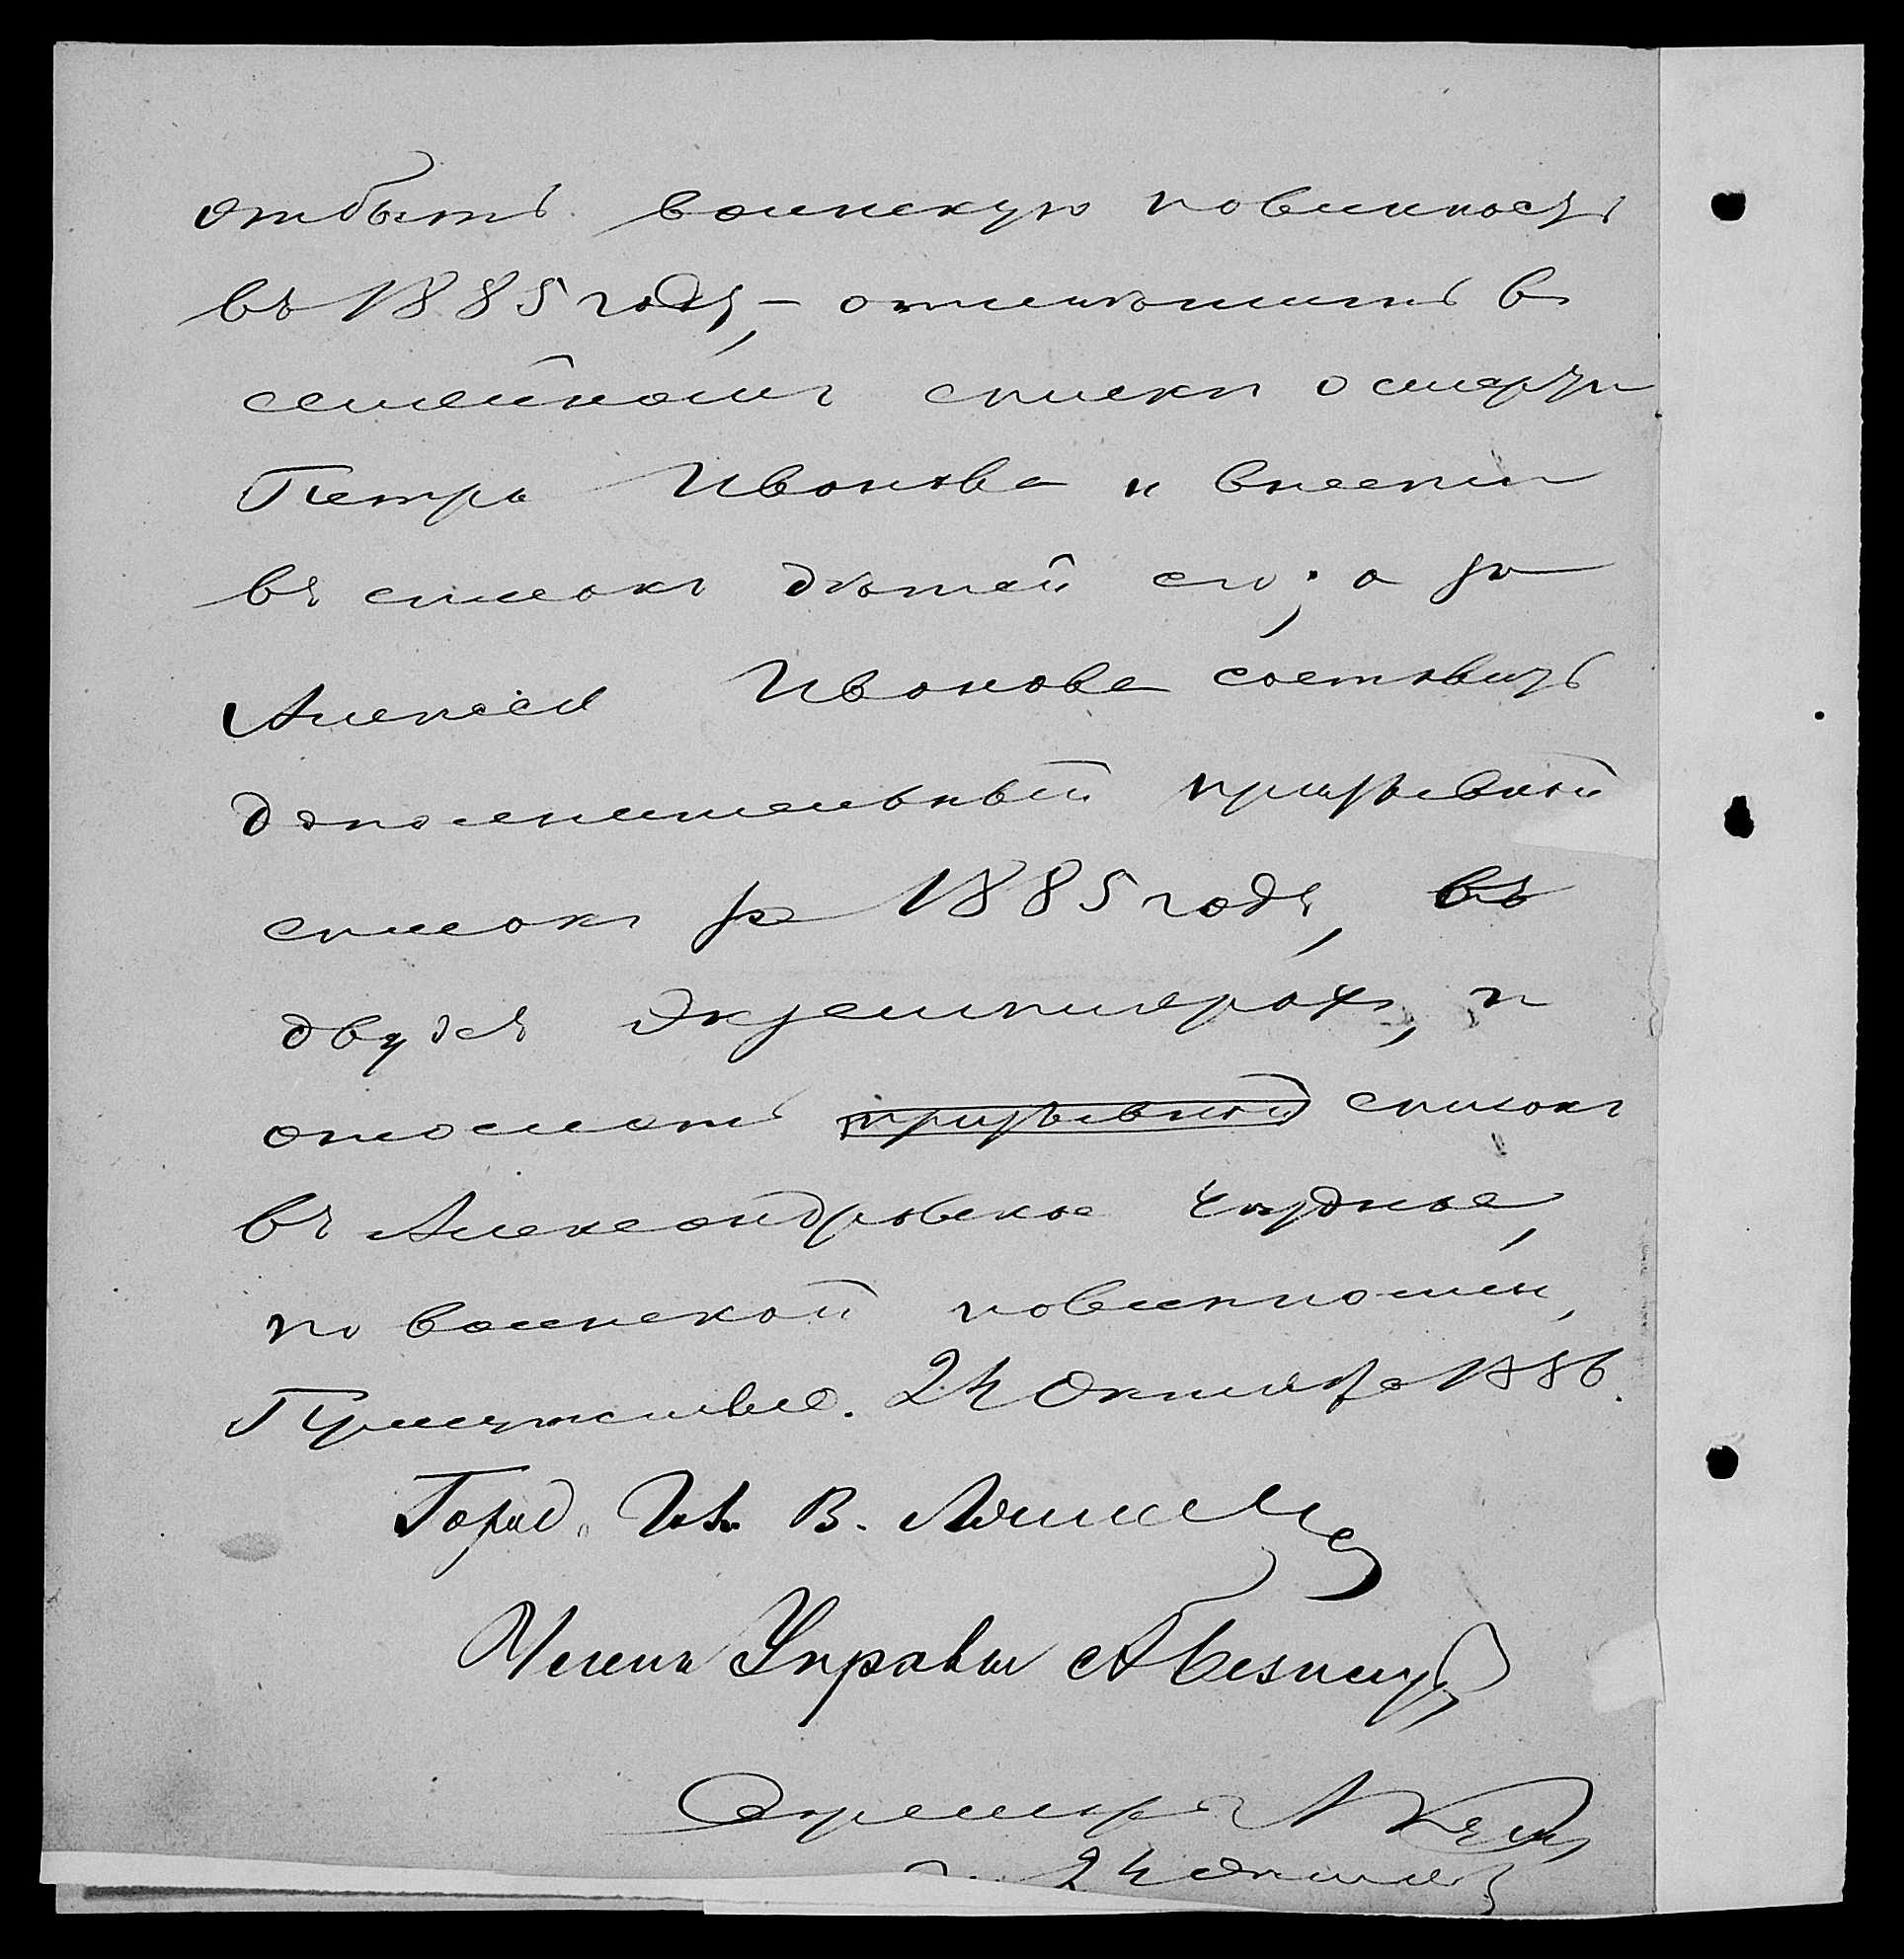 отбыть воинскую повинность
въ 1885 году, – отметить въ
семейномъ списке о смерти
Петра Иванова и внести
въ списокъ детей его; а на
Алексея Иванова составить
дополнительный призывной
списокъ за 1885 годъ, въ
двухъ экземплярахъ, и
отослать призывной списокъ
въ Александровское уездное,
по воинской повинности,
Присутствие. 24 Октября 1886.
Город. Гол. В.
Членъ Управы А
Секретарь А
24 Октября